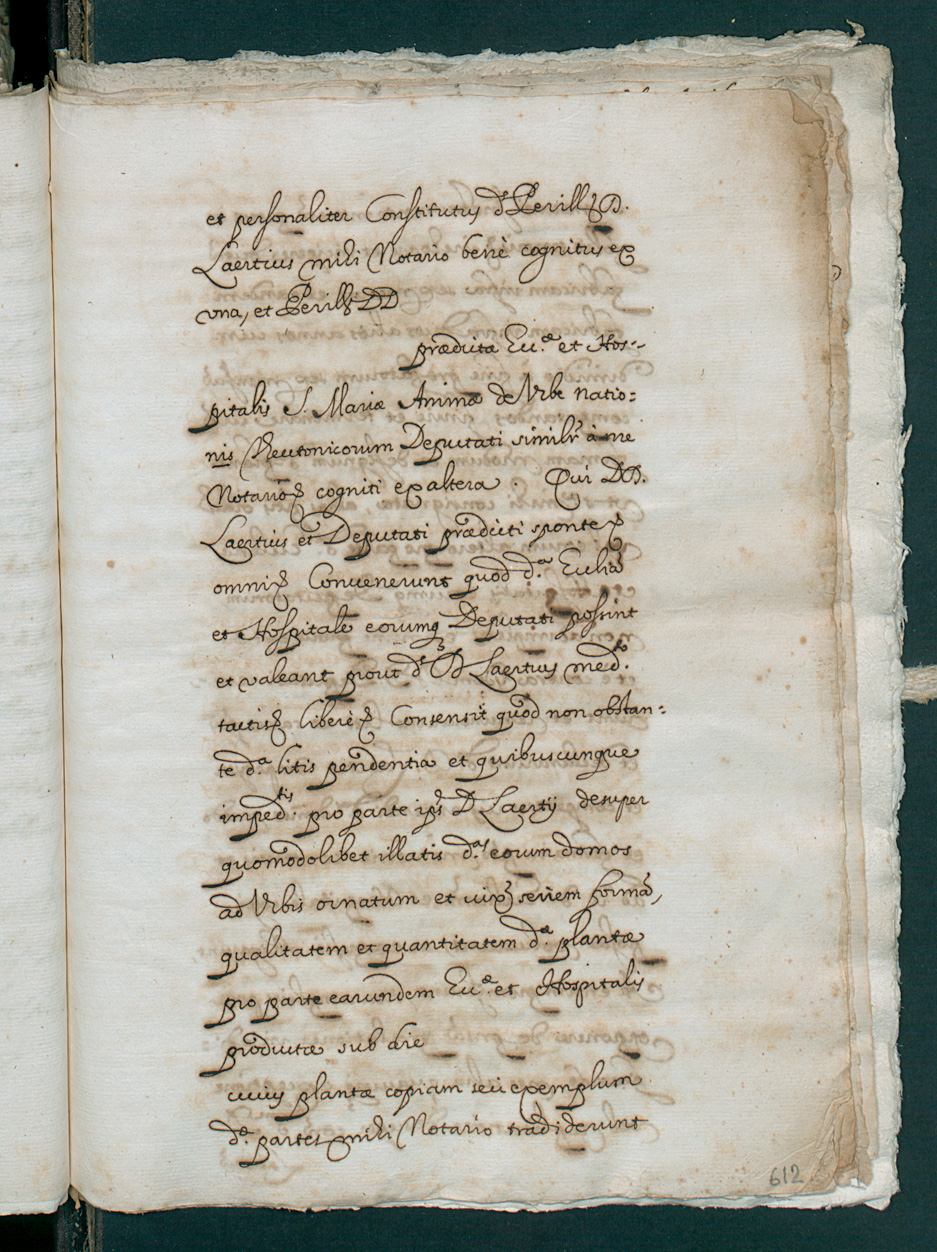 et personaliter Constitutus d. Perill. D.
Laertius mihi Notario benè cognitus ex
vna, et Perill. DD
prædictæ Ecc.æ et Hos-
pitalis S. Mariæ Animæ de Vrbe natio:
nis Theutonicorum Deputati simil.r à me
Notario cogniti ex altera. Qui DD.
Laertius et Deputati prædicti sponte
omni Conuenerunt quod d.a Ecclia
et Hospitale eorumq Deputati possint
et valeant prout d. D. Laertius med.o
tactis liberè Consensit quod non obstan:
te d.a litis pendentia et quibuscunque
imped.tis pro parte ips D Laertij desuper
quomodolibet illatis d.as eorum domos
ad Vrbis ornatum et seriem formã,
qualitatem et quantitatem d.æ plantæ
pro parte earundem Ecc.æ et Hospitalis
productæ sub die
cuius plantæ copiam seu exemplum
d.æ partes mihi Notario tradiderunt
612